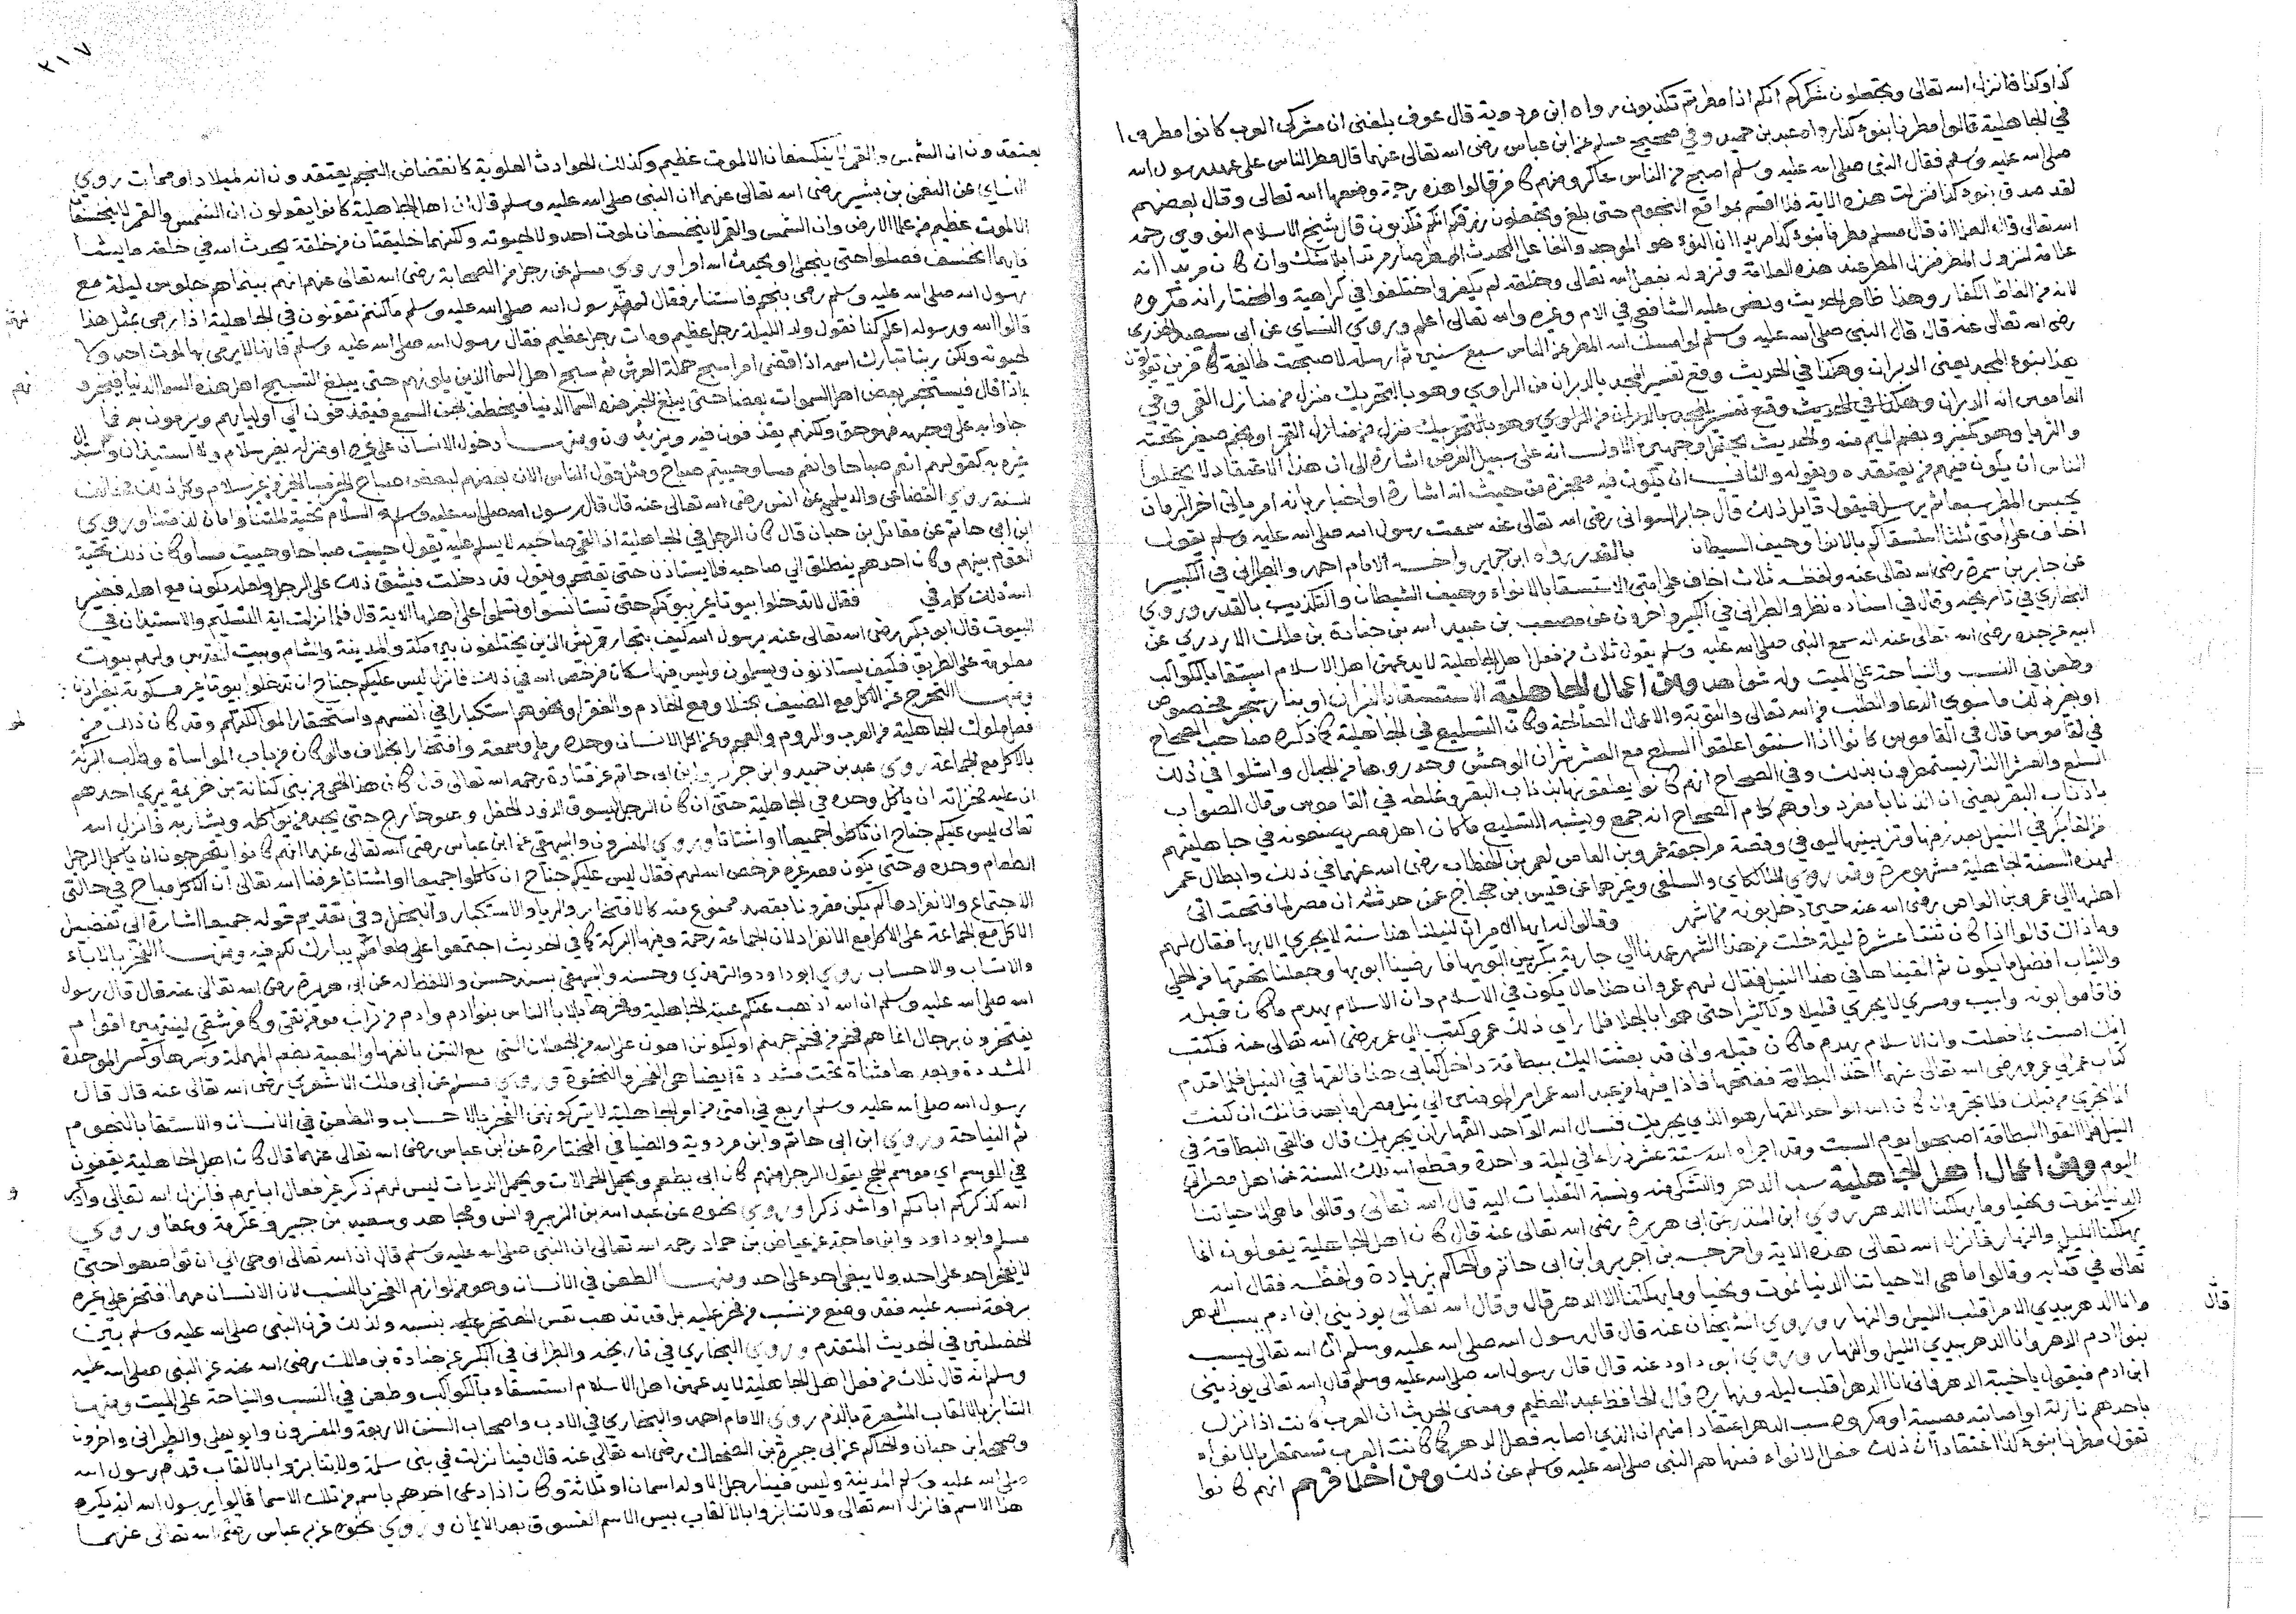 كذا وكذا فانزل الله تعالى وتجعلون شكركم انكم اذا مطرتم تكذبون رواه ابن مردوية قال عوف بلغني ان مشركي العرب كانوا اذا مطروا
في الجاهلية قالوا مطرنا بنوء كذا رواه عبد بن حميد وفي صحيح مسلم عن ابن عباس رضى الله تعالى عنهما قال مطر الناس على عهد رسول الله
صلى الله عليه وسلم فقال النبي صلى الله عليه وسلم اصبح من الناس شاكر ومنهم كافر قالوا هذه رحمة وضعها الله تعالى وقال بعضهم
لقد صدق نوء كذا فنزلت هذه الاية فلا اقسم بمواقع النجوم حتى بلغ وتجعلون رزقكم انكم تكذبون قال شيخ الاسلام النووي رحمه
الله تعالى قال العلماء ان قال مسلم مطرنا بنوء كذا مريدا ان النوء هو الموجد والفاعل المحدث للمطر صار مرتدا بلا شك وان كان مريدا انه
علامة لنزول المطر فنزل المطر عند هذه العلامة ونزوله بفعل الله تعالى وخلقه لم يكفر واختلفوا في كراهية والمختار انه مكروه
لانه من الفاظ الكفار وهذا ظاهر الحديث ونص عليه الشافعي في الام وغيره والله تعالى اعلم وروي النساي عن ابي سعيد الخدري
رضى الله تعالى عنه قال قال النبي صلى الله عليه وسلم لو امسك الله المطر عن الناس سبع سنين ثم ارسله لاصبحت طايفة كافرين تقول
هذا بنوء المجدح يعني الدبران وهكذا في الحديث وقع تفسير المجدح بالدبران من الراوي وهو بالتحريك منزل من منازل القمر وفي
الناس ان يكون منهم من يعتقده ويقوله والثاني ان تكون فيه معجزة من حيث انه اشارة او اخبار بانه امر ياتي اخر الزمان
يحبس المطر سبعا ثم يرسل فيقول قايل ذلك قال جابر السواني رضى الله تعالى عنه سمعت رسول الله صلى الله عليه وسلم يقول
اخاف على امتي ثلثا استسقاء بالانواء وحيف السلطان بالقدر رواه ابن جرير واخـ الامام احمد والطبراني في الكبير
عن جابر بن سمرة رضى الله تعالى عنه ولفظه ثلاث اخاف على امتي الاستسقا بالانواء وحيف الشيطان والتكذيب بالقدر وروي
البخاري في تاريخه وقال في اسناده نظر والطبراني في الكبير واخرون عن مصعب بن عبيد الله بن جنادة بن مالك الازدي عن
ابيه عن جده رضى الله تعالى عنه انه سمع النبي صلى الله عليه وسلم يقول ثلاث من فعل اهل الجاهلية لا يدعهن اهل الاسلام استسقا بالكواكب
وطعن في النسب والنياحة على الميت وله شواهد ومن اعمال الجاهلية الاستسقا بالنيران او بنار سحر مخصوص
او بغير ذلك ما سوى الدعا والطلب من الله تعالى والتوبة والاعمال الصالحة وكان التسليع في الجاهلية كما ذكره صاحب الصحاح
في لقاموس قال في القاموس كانوا اذا استنتوا علقوا السلع مع العشر بثيران الوحش وحدروها من الجبال واشعلوا في ذلك
السلع والعشر النار يستمطرون بذلك وفي الصحاح انهم كانوا يعلقونها باذناب البقر وغلطه في القاموس وقال الصواب
باذناب البقر يعني ان اذنابا مفرد واوهم كلام الصحاح انه جمع ويشبه التسليع ما كان اهل مصر يصنعونه في جاهليتهم
لهذه السنة الجاهلية مشهورة وقد روي اللالكاي والسلفي وغيرهما عن قيس بن حجاج عمن حدثه ان مصر لما فتحت اتي
اهلها الى عمرو بن العاص رضى الله عنه حين دخل بونه من اشهر وقالوا له ايها الامير ان لنيلنا هذا سنة لا يجري الا بها فقال لهم
وما ذاك قالوا اذا كان ثنتا عشرة ليلة خلت من هذا الشهر عمدنا الى جارية بكر بين ابويها فارضينا ابويها وجعلنا عليها من الحلي
والثياب افضل ما يكون ثم القيناها في هذا النيل فقال لهم عمرو ان هذا ما لا يكون في الاسلام وان الاسلام يهدم ما كان قبله
فاقاموا بونه وابيب ومسري لا يجري قليلا ولا كثيرا حتى هموا بالجلا فلما راي ذلك عمرو كتب الى عمر رضى الله تعالى عنه فكتب
انك اصبت بما فعلت وان الاسلام يهدم ما كان قبله واني قد بعثت اليك ببطاقة داخل كتابي هذا فالقها في النيل فلما قدم
كتاب عمر الى عمرو رضى الله تعالى عنهما اخذ البطاقة ففتحها فاذا فيها من عبد الله عمر امير المومنين الى نيل مصر اما بعد فانك ان كنت
انما تجري من قبلك فلا تجر وان كان الله الواحد القهار هو الذي يجريك فنسال الله الواحد القهار ان يجريك قال فالقى البطاقة في
النيل فلما القوا البطاقة اصبحوا يوم السبت وقد اجراه الله ستة عشر ذراعا في ليلة واحدة وقطع الله تلك السنة عن اهل مصر الى
اليوم ومن اعمال اهل الجاهلية سب الدهر والتشكي منه ونسبة التقلبات اليه قال الله تعالى وقالوا ما هي الا حياتنا
الدنيا نموت ونحيا وما يهلكنا الا الدهر روي ابن المنذر عن ابي هريرة رضى الله تعالى عنه قال كان اهل الجاهلية يقولون انما
يهلكنا الليل والنهار فانزل الله تعالى هذه الاية واخرجه بن اجرير وابن ابي حاتم والحاكم بزيادة ولفظه فقال الله
تعالى في كتابه وقالوا ما هي الا حياتنا الدنيا نموت ونحيا وما يهلكنا الا الدهر قال وقال الله تعالى يوذيني ابن ادم يسب الدهر
وانا الدهر بيدي الامر اقلب الليل والنهار وروي الشيخان عنه قال قال رسول الله صلى الله عليه وسلم قال الله تعالى يسب
بنو ادم الدهر وانا الدهر بيدي الليل والنهار وروي ابو داود عنه قال قال رسول الله صلى الله عليه وسلم قال الله تعالى يوذيني
ابن ادم فيقول يا خيبة الدهر فاني انا الدهر اقلب ليله ونهاره قال الحافظ عبد العظيم ومعنى الحديث ان العرب كانت اذا نزل
باحدهم نازلة او اصابته مصيبة او مكروه سب الدهر اعتقادا منهم ان الذي اصابه فعل الدهر كما كانت العرب تستمطر بالانواء
تقول مطرنا بنوء كذا اعتقادا ان ذلك فعل الانواء فنهاهم النبي صلى الله عليه وسلم عن ذلك ومن اخلاقهم انهم كانوا
قال
٢١٧
يعتقدون ان الشمس والقمر لا ينكسفان الا لموت عظيم وكذلك الحوادث العلوية كانقضاض النجم يعتقدون انه لميلاد او ممات روي
النساي عن النعمن بن بشير رضى الله تعالى عنهما ان النبي صلى الله عليه وسلم قال ان اهل الجاهلية كانوا يقولون ان الشمس والقمر لا ينخسفان
الا لموت عظيم من عظما الارض وان الشمس والقمر لا ينخسفان لموت احد ولا لحيوته ولكنهما خليقتان من خلقه يحدث الله في خلقه ما يشا
فايهما انخسف فصلوا حتى ينجلي او يحدث الله امرا وروي مسلم عن رجل من الصحابة رضى الله تعالى عنهم انهم بينما هم جلوس ليلة مع
رسول الله صلى الله عليه وسلم رمي بنجم فاستنار فقال لهم رسول الله صلى الله عليه وسلم ما كنتم تقولون في الجاهلية اذا رمي بمثل هذا
قالوا الله ورسوله اعلم كنا نقول ولد الليلة رجل عظيم ومات رجل عظيم فقال رسول الله صلى الله عليه وسلم فانها لا يرمى بها لموت احد ولا
لحيوته ولكن ربنا تبارك اسمه اذا قضى امرا سبح حملة العرش ثم سبح اهل السما الذين يلونهم حتى يبلغ التسبيح اهل هذه السما الدنيا
ماذا قال فيستخبر بعض اهل السموات بعضا حتى يبلغ الخبر هذه السما الدنيا فيخطف الجن السمع فيقذفون الى اوليايهم ويرمون به فما
جاوا به على وجهه فهو حق ولكنهم يقذفون فيه ويزيدون ومنها دخول الانسان على غيره او منزله بغير سلام ولا استيذان
غيره به كقولهم انعم صباحا وانعم مسا وحييتم صباح ومثل قول الناس الان بعضهم لبعض صباح الخير مسا الخير من غير سلام وكل ذلك مخالف
للسنة روي القضاعي والديلمي عن انس رضى الله تعالى عنه قال قال رسول الله صلى الله عليه وسلم السلام تحية لملتنا وامان لذمتنا وروي
ابن ابي حاتم عن مقاتل بن حبان قال كان الرجل في الجاهلية اذا لقي صاحبه لا يسلم عليه يقول حييت صباحا وحييت مسا وكان ذلك تحية
القوم بينهم وكان احدهم ينطلق الى صاحبه فلا يستاذن حتى يقتحم ويقول قد دخلت فيشق ذلك على الرجل ولعله يكون مع اهله فغير
الله ذلك كله في فقال لا تدخلوا بيوتا غير بيوتكم حتى تستانسوا وتسلموا على اهلها الاية قال فلما نزلت اية التسليم والاستيذان في
البيوت قال ابو بكر رضى الله تعالى عنه يرسول الله كيف بتجار قريش الذين يختلفون بين مكة والمدينة والشام وبيت المقدس ولهم بيوت
معلومة على الطريق فكيف يستاذنون ويسلمون وليس فيها سكان فرخص الله في ذلك فانزل ليس عليكم جناح ان تدخلوا بيوتا غير مسكونة
ومنها التحرج عن الاكل مع الضيف بخلا ومع الخادم والفقرا ونحوهم استكبارا في انفسهم واستحقارا لمواكلتهم وقد كان ذلك من
فعل ملوك الجاهلية من العرب والروم والعجم وغير اكل الانسان وحده ريا وسمعة وافتخارا بخلاف ما لو كان من باب المواساة وطلب البركة
بالاكل مع الجماعة روي عبد بن حميد وابن جرير وابن ابي حاتم عن قتادة رحمه الله تعالى قال كان هذا الحي من بني كنانة بن خزيمة يري احدهم
ان عليه مخزاة ان ياكل وحده في الجاهلية حتى ان كان الرجل ليسوق الذود الحفل وهو جايع حتى يجد من يواكله ويشاربه فانزل الله
تعالى ليس عليكم جناح ان تاكلوا جميعا او اشتاتا وروي المفسرون والبيهقي عن ابن عباس رضى الله تعالى عنهما انهم كانوا يتحرجون ان ياكل الرجل
الطعام وحده وحتى يكون معه غيره فرخص الله لهم فقال ليس عليكم جناح ان تاكلوا جميعا او اشتاتا عرفنا الله تعالى ان الاكل مباح في حالتي
الاجتماع والانفراد ما لم يكن مقرونا بقصد ممنوع منه كالافتخار والريا والاستكبار والبخل وفي تقديم قوله جميعا اشارة الى تفضيل
الاكل مع الجماعة على الاكل مع الانفراد لان الجماعة رحمة وفيها البركة كما في الحديث اجتمعوا على طعامكم يبارك لكم فيه ومنها الفخر بالاباء
والانساب والاحساب روي ابو داود والترمذي وحسنه والبيهقي بسند حسن واللفظ له عن ابي هريرة رضى الله تعالى عنه قال قال رسول
الله صلى الله عليه وسلم ان الله اذهب عنكم عبية الجاهلية وفخرها بالابا الناس بنو ادم وادم من تراب مومن تقي وكافر شقي لينتهين اقوام
يفتخرون برجال انما هم فحم من فحم جهنم او ليكونن اهون على الله من الجعلان التي تدفع النتن بانفها والعبية بضم المهملة وكسرها وكسر الموحدة
المشددة وبعدها مثناة تحت مشددة ايضا هي الفخر والنخوة وروي مسلم عن ابي مالك الاشعري رضى الله تعالى عنه قال قال
رسول الله صلى الله عليه وسلم اربع في امتي من امر الجاهلية لا يتركونهن الفخر بالاحساب والطعن في الانساب والاستسقا بالنجوم
ثم النياحة وروي ابن ابي حاتم وابن مردوية والضيا في المختارة عن ابن عباس رضى الله تعالى عنهما قال كان اهل الجاهلية يقفون
في الموسم اي موسم الحج يقول الرجل منهم كان ابي يطعم ويحمل الحمالات ويحمل الديات ليس لهم ذكر غير فعال ابايهم فانزل الله تعالى
الله كذكركم اباءكم او اشد ذكرا وروي نحوه عن عبد الله بن الزبير وانس ومجاهد وسعيد بن جبير وعكرمة وعطا وروي
مسلم وابو داود وابن ماجة عن عياض بن حماد رحمه الله تعالى ان النبي صلى الله عليه وسلم قال ان الله تعالى اوحى الي ان تواضعوا حتى
لا يفخر احد على احد ولا يبغي احد على احد ومنها الطعن في الانساب وهو من لوازم الفخر بالنسب لان الانسان مهما افتخر على غيره
برفعة نسبه عليه فقد وضع من نسب من فخر عليه بل قد تذهب نفس المفتخر عليه بنسبه ولذلك قرن النبي صلى الله عليه وسلم بين
الخصلتين في الحديث المتقدم وروي البخاري في تاريخه والطبراني في الكبير عن جنادة بن مالك رضى الله عنه عن النبي صلى الله عليه
وسلم انه قال ثلاث من فعل اهل الجاهلية لا يدعهن اهل الاسلام استسقاء بالكواكب وطعن في النسب والنياحة على الميت ومنها
التنابز بالالقاب المشعرة بالذم روي الامام احمد والبخاري في الادب واصحاب السنن الاربعة والمفسرون وابو يعلى والطبراني واخرون
وصححه ابن حبان والحاكم عن ابي جبيرة بن الضحاك رضى الله تعالى عنه قال فينا نزلت في بني سلمة ولا تنابزوا بالالقاب قدم رسول الله
صلى الله عليه وسلم المدينة وليس فينا رجل الا وله اسمان او ثلاثة وكان اذا دعى احدهم باسم من تلك الاسما قالوا يرسول الله انه يكره
هذا الاسم فانزل الله تعالى ولا تنابزوا بالالقاب بيس الاسم الفسوق بعد الايمان وروي نحوه عن بن عباس رضى الله تعالى عنهما